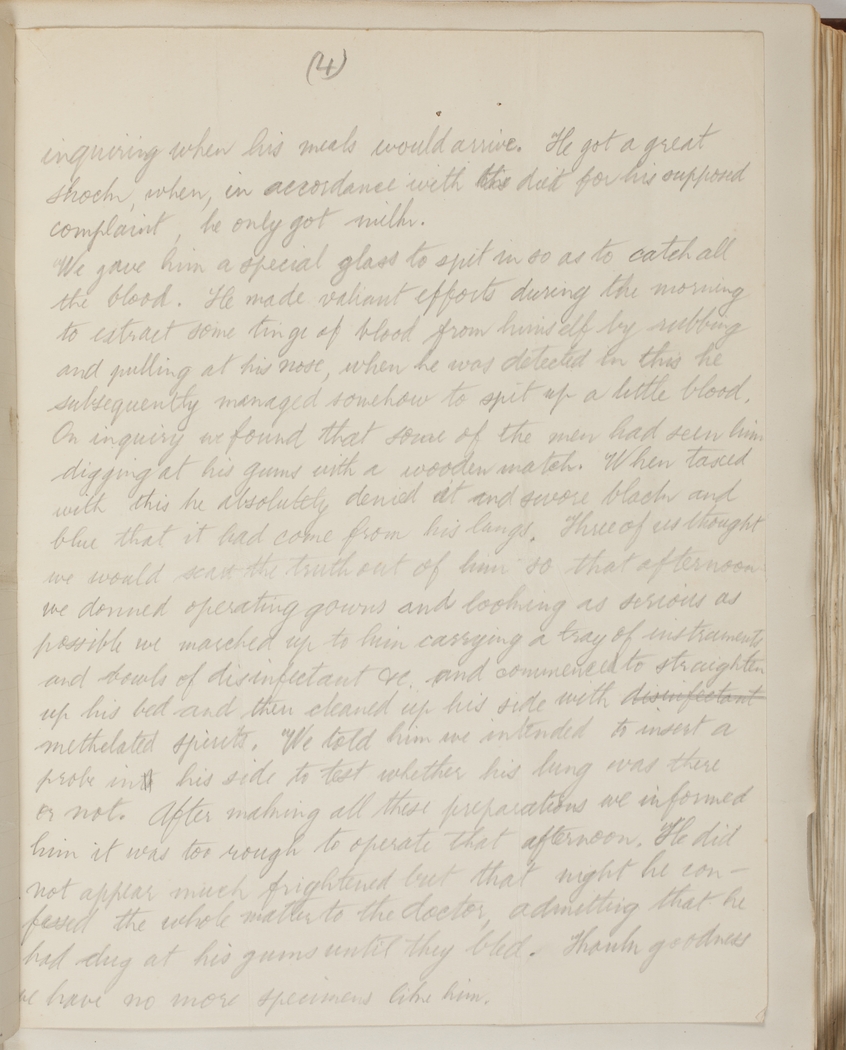 (4)
inquiring when his meals would arrive. He got a great
shock, when, in accordance with the diet for his supposed
complaint, he only got milk.
We gave him a special glass to spit in so as to catch all
the blood. He made valiant efforts during the morning
to extract some tinge of blood from himself by rubbing
and pulling at his nose, when he was detected in this he
subsequently managed somehow to spit up a little blood.
On inquiry we found that some of the men had seen him
digging at his gums with a wooden match. When taxed
with this he absolutely denied it and swore black and
blue that it had come from his lungs. Three of us thought
we would scare the truth out of him so that afternoon
we donned operating gowns and looking as serious as
possible we marched up to him carrying a tray of instruments
and bowls of disinfectant &c. and commenced to straighten
up his bed and then cleaned up his side with disinfectant
methelated spirits. We told him we intended to insert a
probe into his side to test whether his lung was there
or not. After making all these preparations we informed
him it was too rough to operate that afternoon. He did
not appear much frightened but that night he con-
fessed the whole matter to the doctor, admitting that he
had dug at his gums until they bled. Thank goodness
we have no more specimens like him.